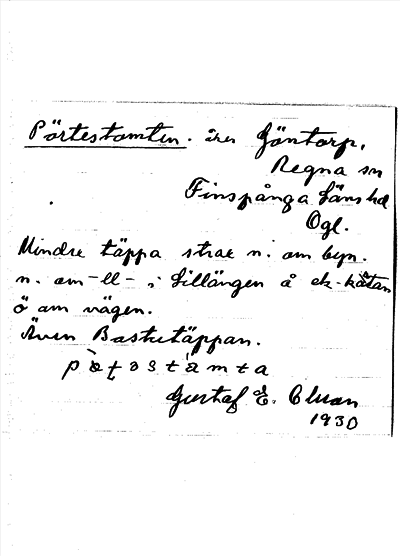 Pörtestomten. åker Göntorp,
Regna sn
Finspånga läns hd
Ögl.
Mindre täppa strax n. om byn.
n. om -ll- i Lillängen å ek.-kåtan
ö om vägen.
Även Bastutäppan.
Gustaf E. Cluan
1930